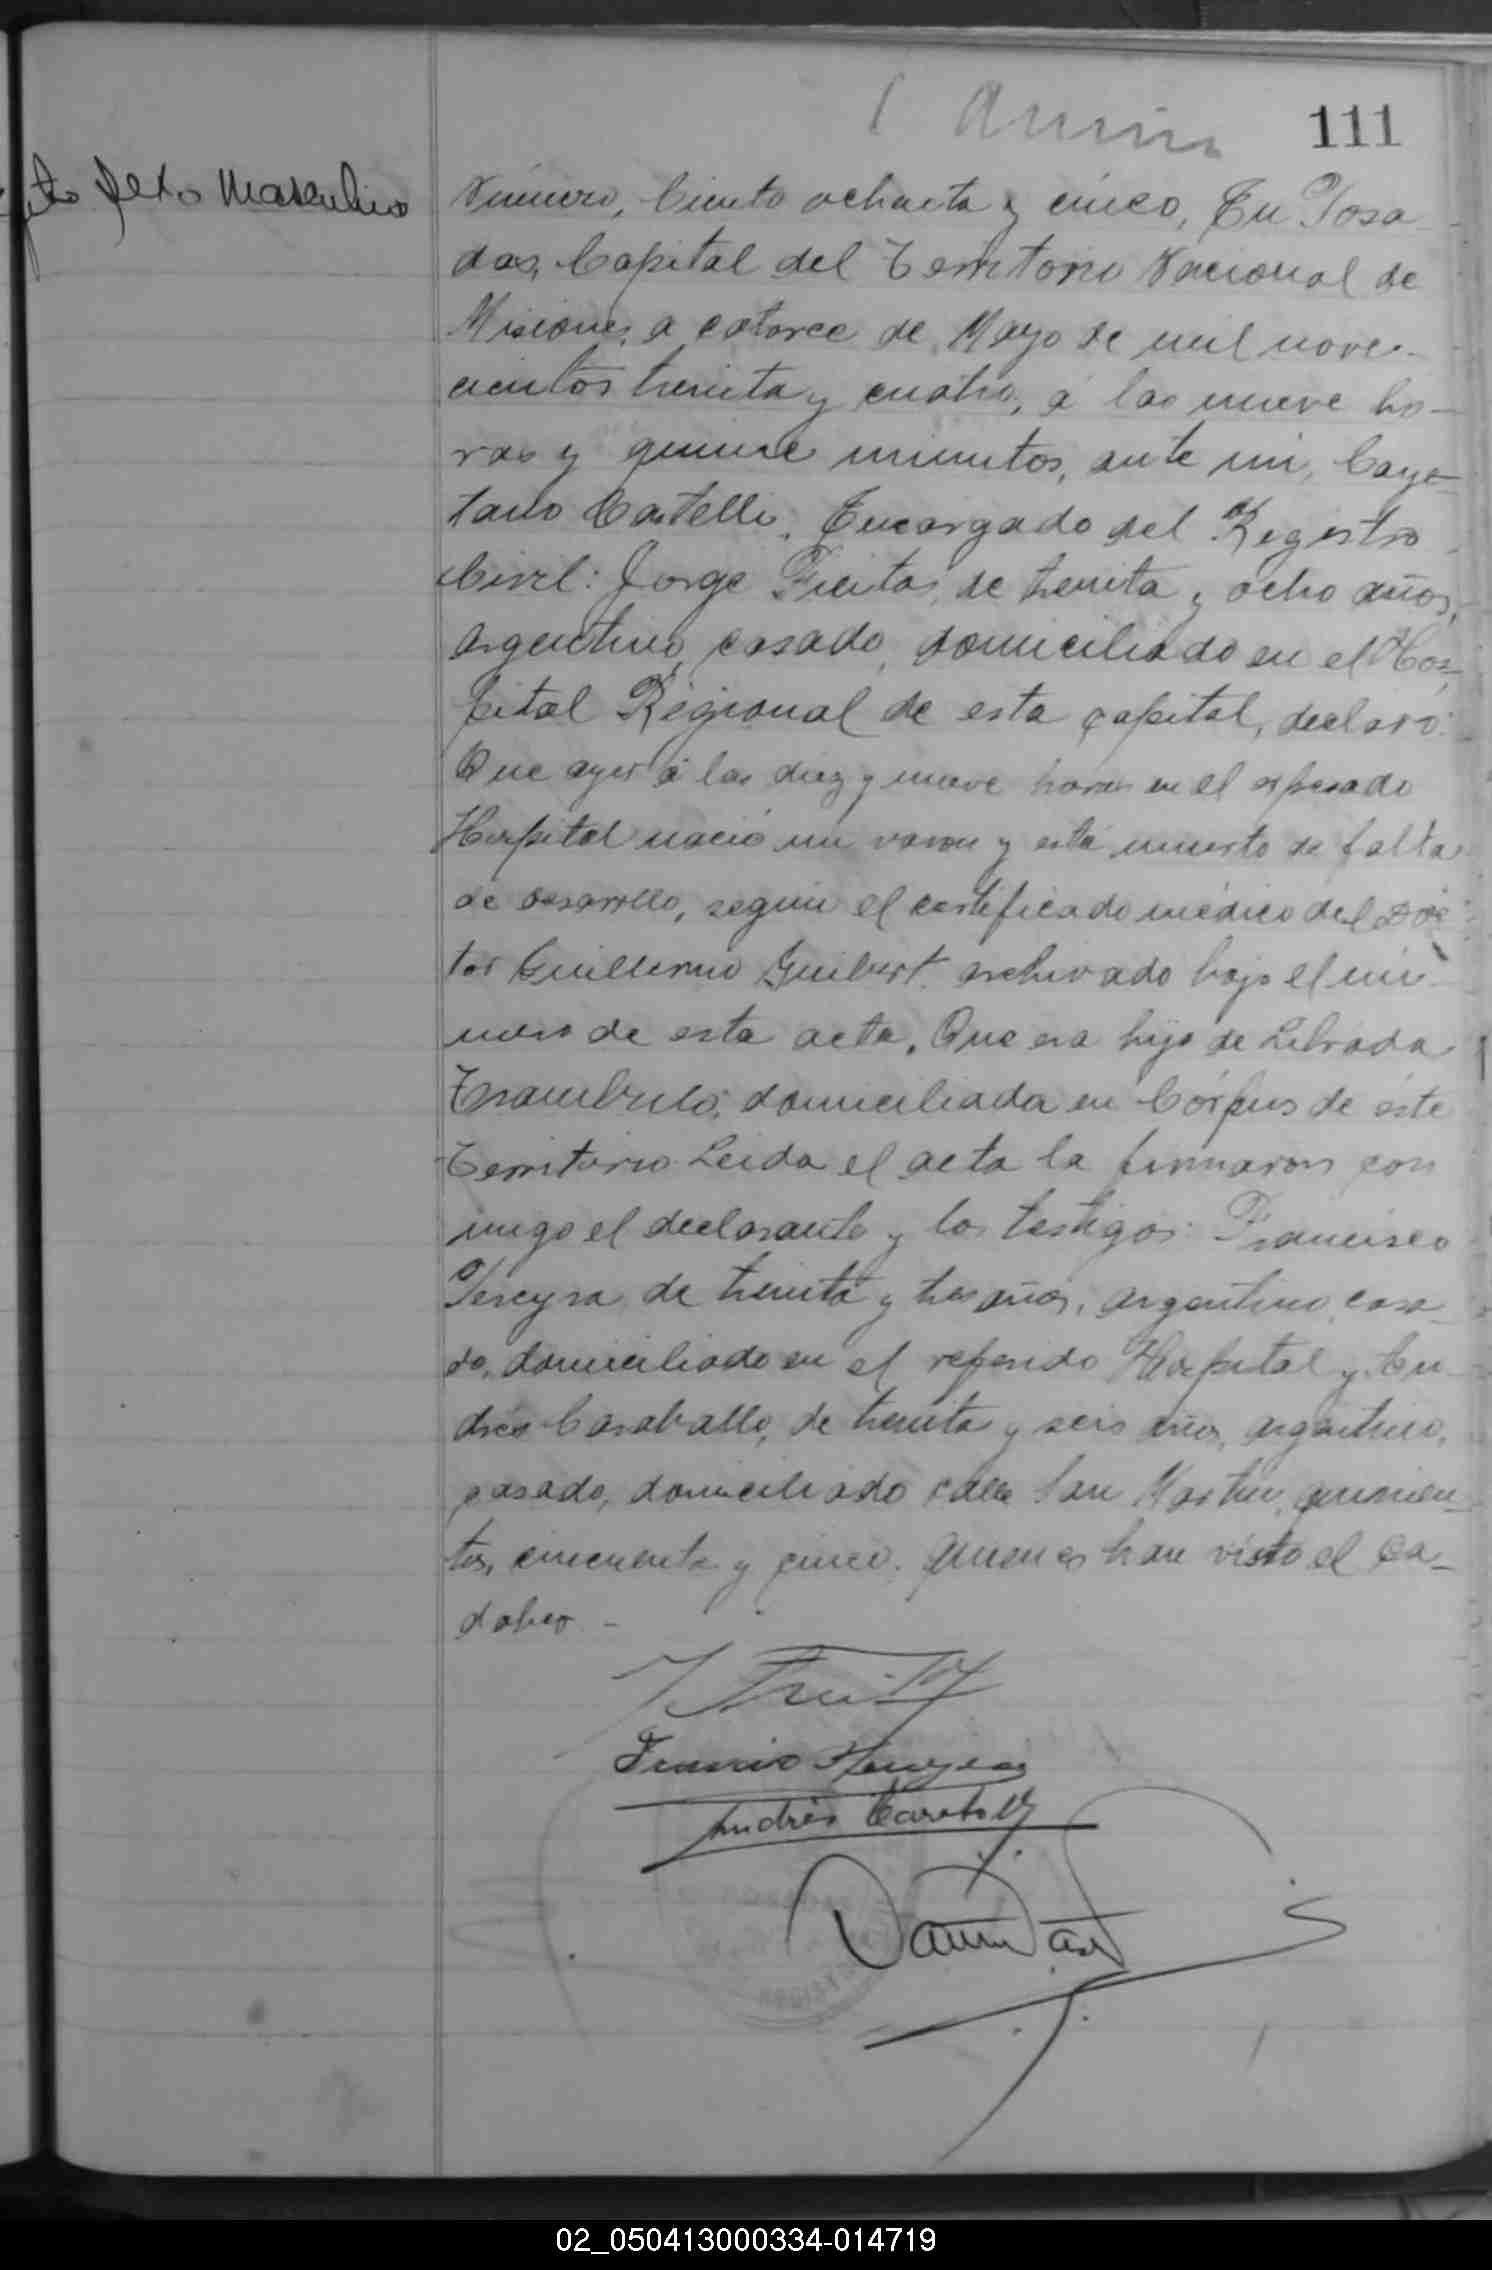 111
Sexo Masculino
Número, Ciento ochenta y cinco, En Posa
das, Capital del Territorio Nacional de
Misiones, a catorce de Mayo de mil nove-
cientos treinta y cuatro, á las nueve ho-
ras y quince minutos, ante mi, Caye-
tano Castelli, Encargado del Registro
Civil: Jorge Freitas, de treinta y ocho años,
argentino, casado, domiciliado en el Hos-
pital Regional de esta capital, declaró:
Que ayer á las diez y nueve horas en el expresado
Hospital nació un varon y está muerto de falta
de desarrollo, según el certificado médico del Doc
tor Guillermo Guibert archivado bajo el nú-
mero de esta acta. Que era hijo de Librada
domiciliada en Córpus de éste
Territorio. Leida el acta la firmaron con
migo el declarante y los testigos: Francisco
Pereyra de treinta y tres años, argentino, casa-
do, domiciliado en el referido Hospital y An-
drés Caraballo, de treinta y seis años, argentino,
casado, domiciliado calle San Martin, quinien-
tos, cincuenta y cinco. quienes han visto el ca-
daver. -
Andrés Caraballo
02_050413000334-014719